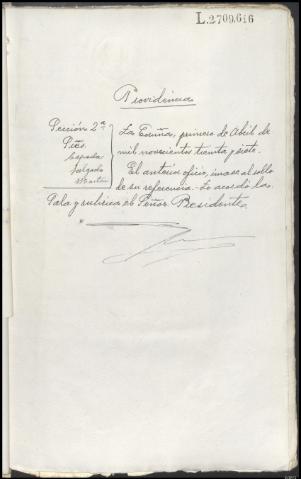 L.2709.616
Providencia
Sección 2ª
Pités
Cepeda
Salgado
Martín
La Coruña, primero de Abril de
mil novecientos treinta y siete.
El anterior oficio, únase al rollo
de su referencia. Lo acordó la
Sala y rubrica el Señor Presidente.